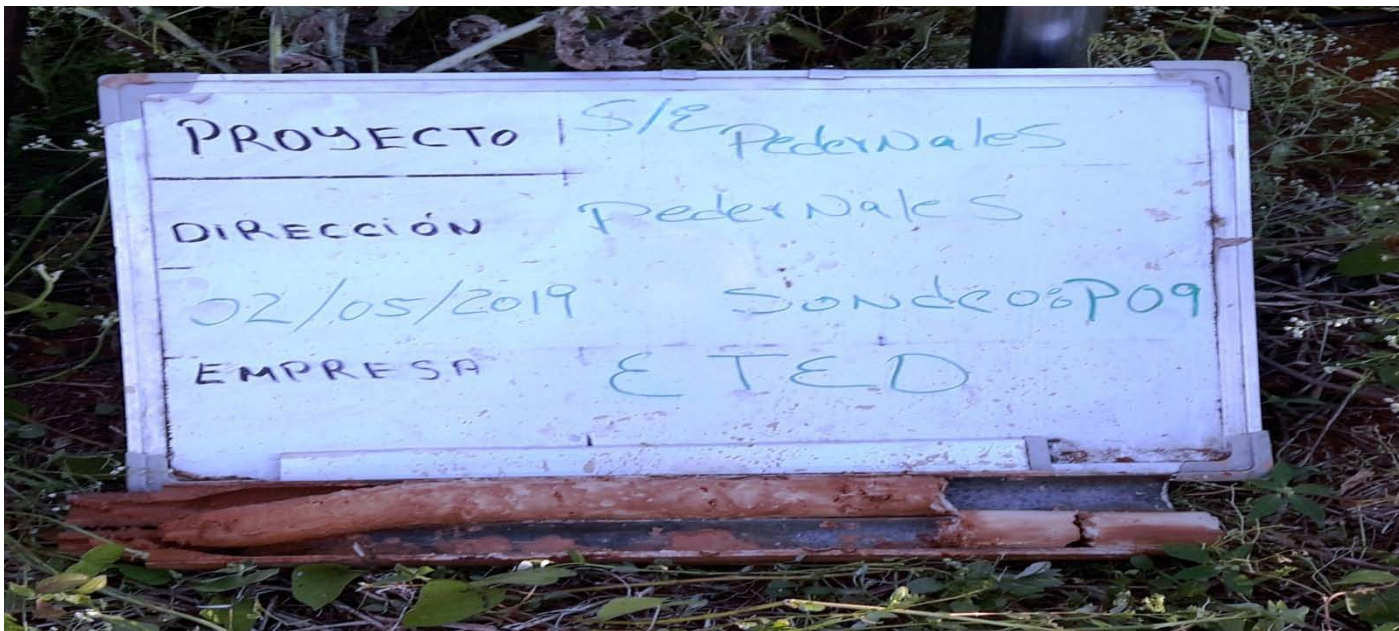 PROYECTO S/E PederNaleS
DIRECCIÓN PederNaleS
02/05/2019 SoNdeo:P09
EMPRESA ETED